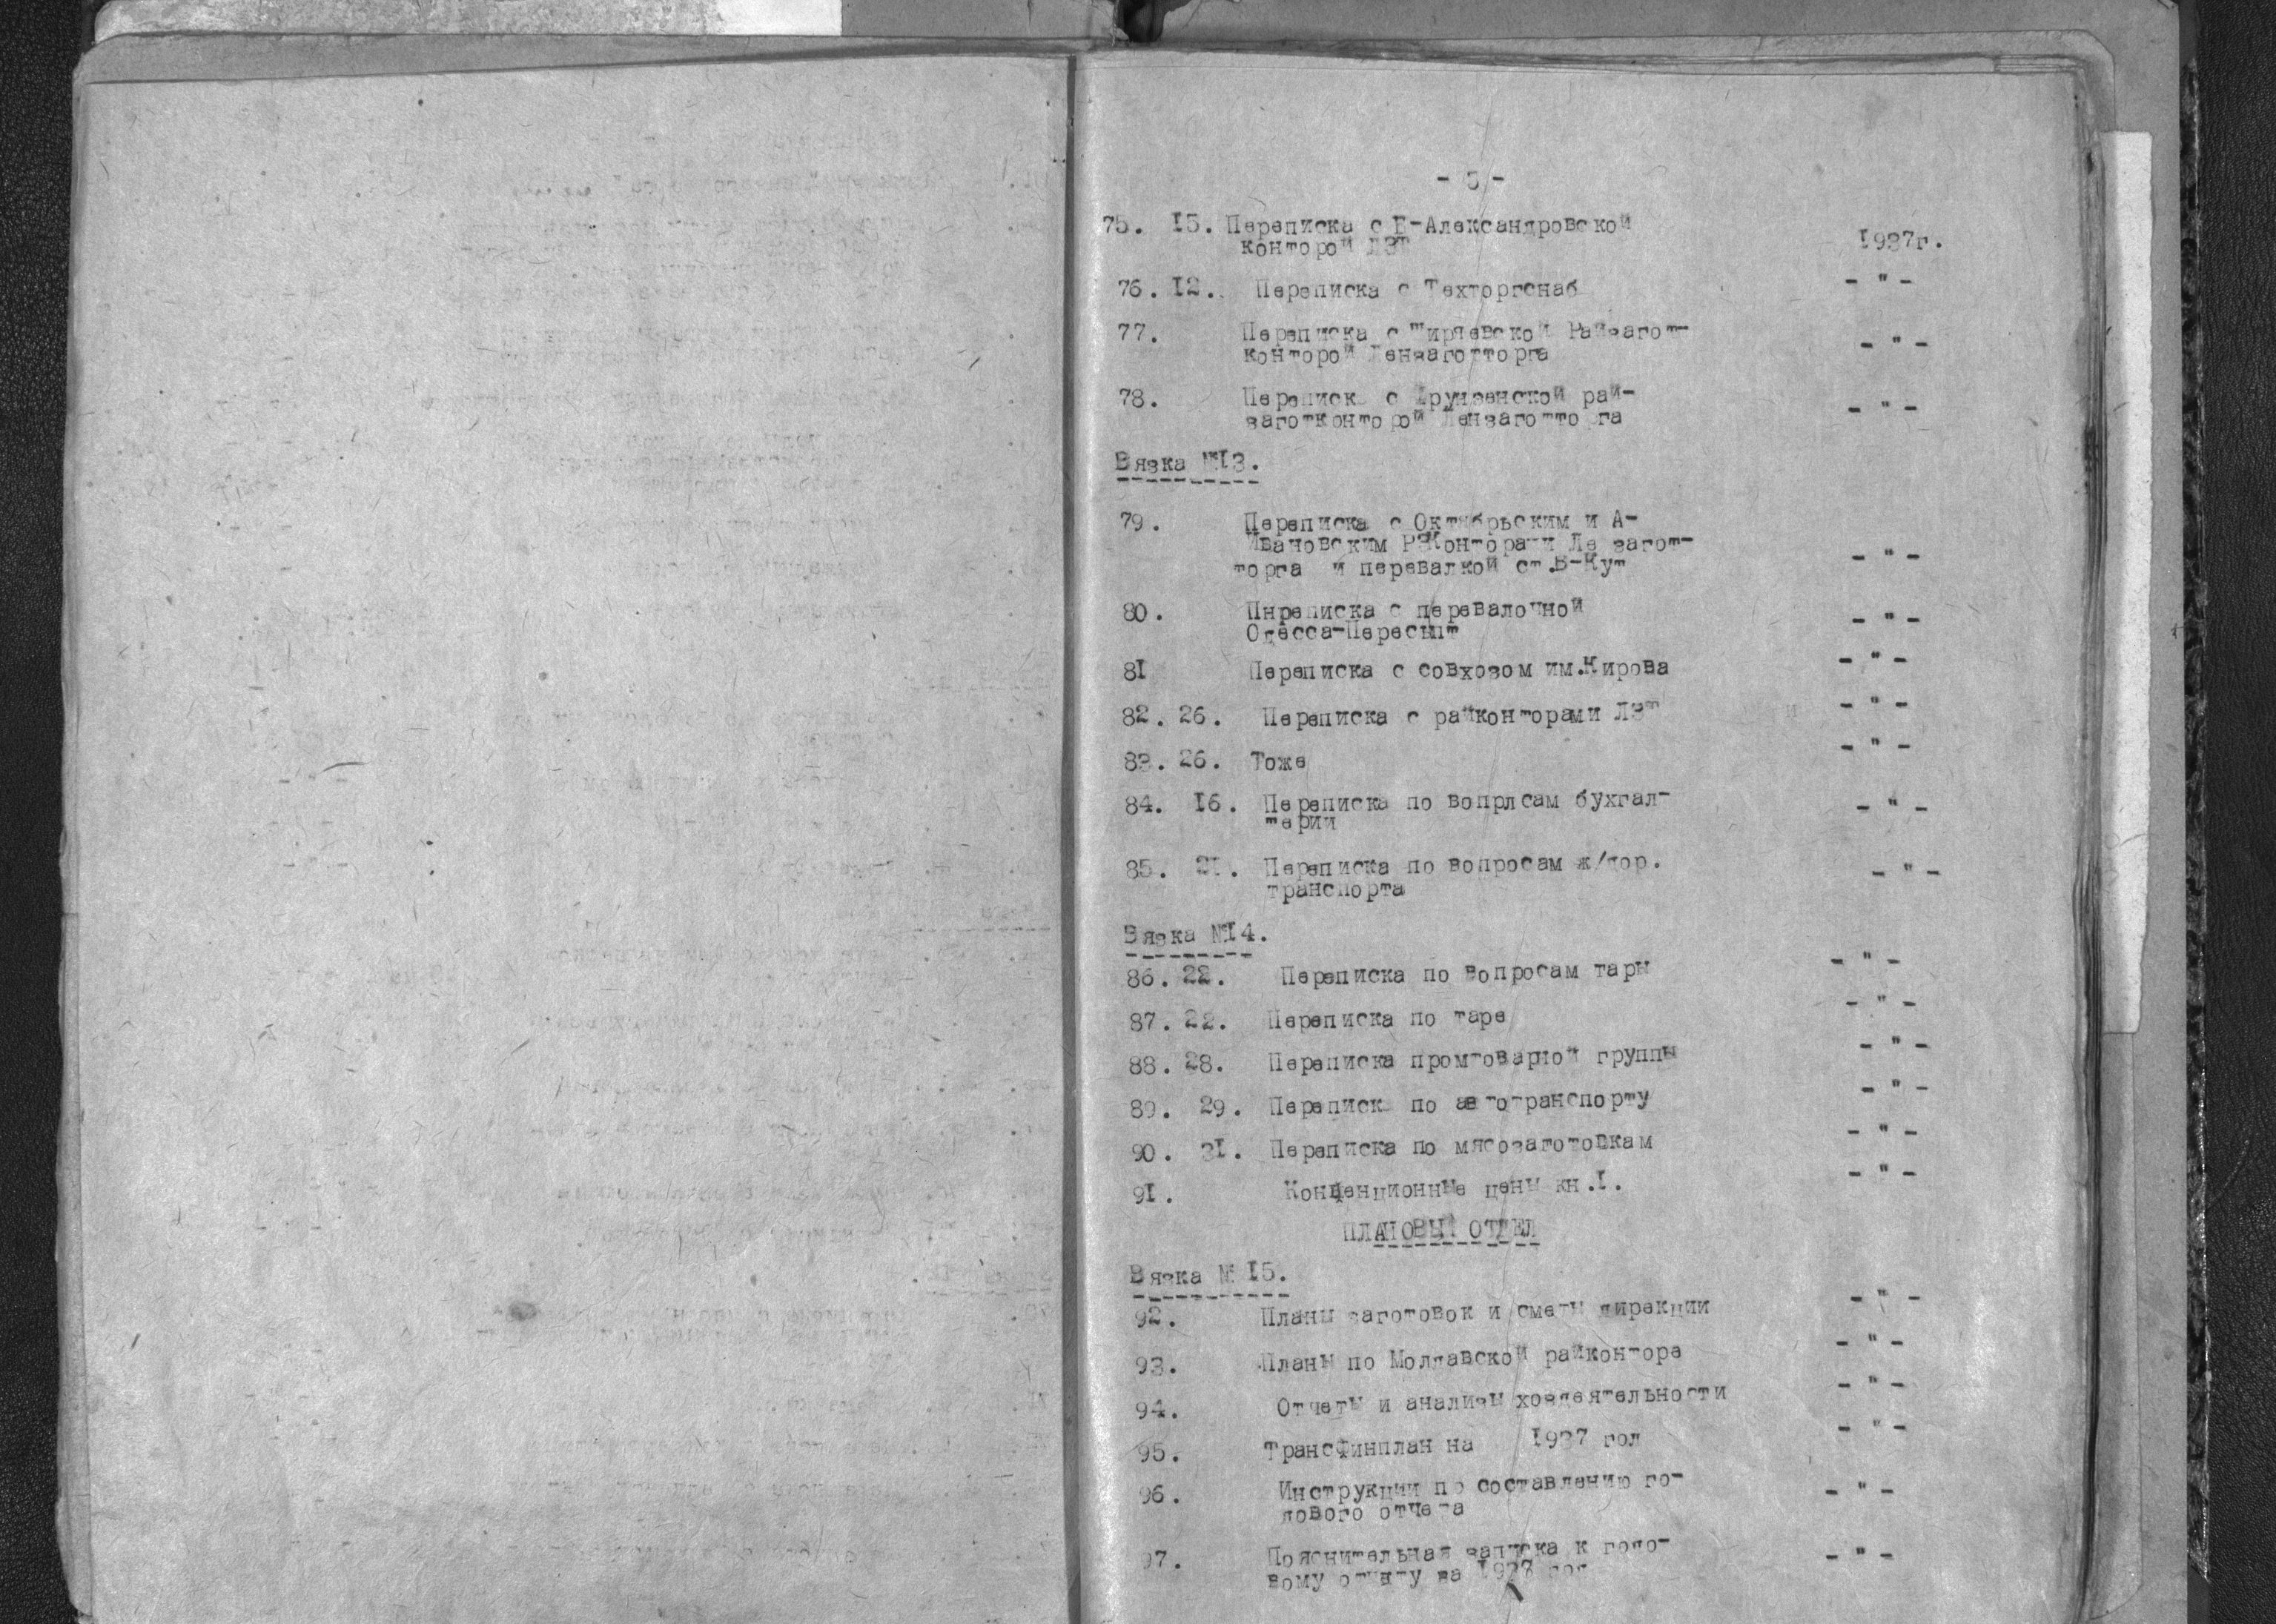 - 5 -
75. 15. Переписка с В-Александровской
конторой ЛЗТ 1937г.
76. 12. Переписка с Техторгснаб - " -
77. Переписка с Ширяевской Райзагот-
конторой Лензаготторга - " -
78. Переписк с Фрунзенской рай-
заготконторой Лензаготторга - " -
Вязка №13.
79. Переписка с Октябрьским и А-
Ивановским РаКонторами Ле загот-
торга и перевалкой ст.В-Кут - " -
80. Пнреписка с перевалочной
Одесса-Пересыпт - " -
81 Переписка с совхозом им.Кирова - " -
82. 26. Переписка с райконторами ЛЗТ - " -
83. 26. Тоже - " -
84. 16. Переписка по вопрлсам бухгал-
терии - " -
85. 21. Переписка по вопросам ж/дор.
транспорта - " -
Вязка №14.
86. 22. Переписка по вопросам тары - " -
87. 22. Переписка по таре - " -
88. 28. Переписка промтоварной группы - " -
89. 29. Переписк по автотранспорту - " -
90. 31. Переписка по мясозаготовкам - " -
91. Конценционные цены кн.1. - " -
ПЛАНОВЫЙ ОТДЕЛ
Вязка № 15.
92. Планы заготовок и сметы дирекции - " -
93. Планы по Молдавской райконторе - " -
94. Отчеты и анализы хоздеятельности - " -
95. Трансфинплан на 1937 год - " -
96. Инструкции по составлению го-
дового отчета - " -
97. Пояснительная записка к годо-
вому отчнту за 1937 год - " -